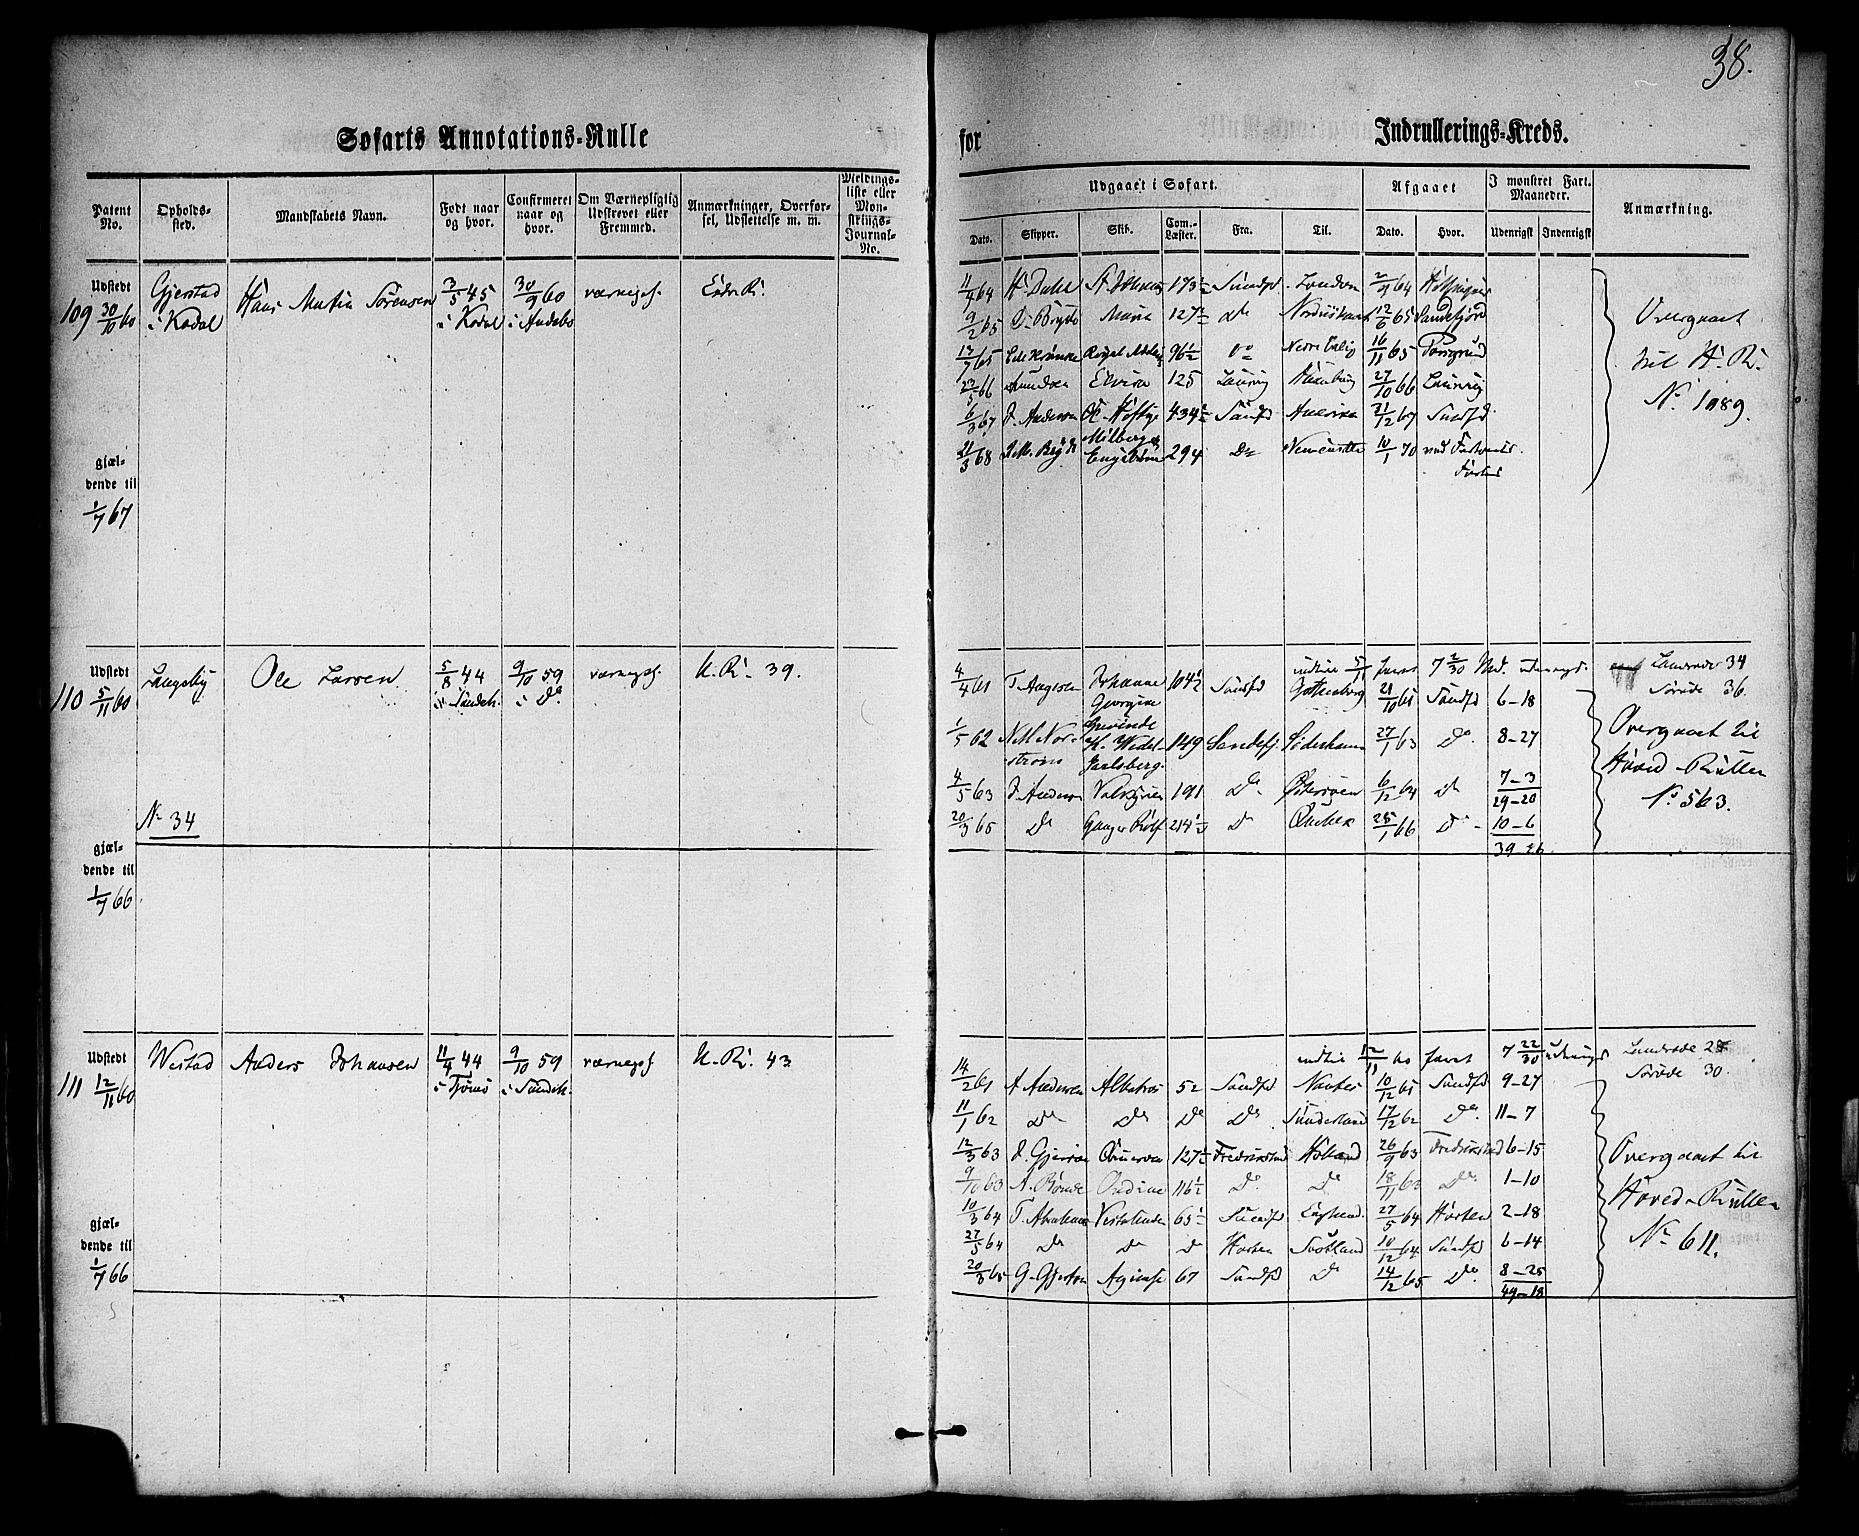 38.
Søfarts Annotations-Rulle for Indrullerings-Kreds.
Patent No. Opholds-sted. Mandskabets Navn. Født naar og hvor. Confirmeret naar og hvor. Om Værnepligtig Udskrevet eller Fremmed. Anmærkninger, Overfør-sel, Udslettelse m. m. Meldings-liste eller Mon-strings-Journal-No.
Udgaaet i Søfart. Afgaaet I mønstret Fart. Maaneder. Anmærkning.
Dato. Skipper. Skib. Com.-Læster. Fra. Til. Dato. Hvor. Udenrigst Indenrigst
109 Udstedt 30/10 60 Gjerstad i Kodal Hans Martin Sörensen 3/5 45 i Kodal 30/9 60 i Andebo værnepl.
gjæl-
dende til
1/7 67
11/4 64 H. Dahl 173 Sandfd London 2/9 64
9/2 65 Bryde Maria 127 Do 12/6 65 Sandefjord
65 96½ Do 16/11 65 Porsgrund
66 Elvira 125 Laurvig Hamburg 27/10 66 Laurvig
6/3 67 J. Andersen 434 Sandfd America 21/12 67 Sandfd
21/3 68 Bryde Engström 294 Do 10/1 70
Overgaaet
til H. R.
No. 1089.
110 Udstedt 5/11 60 Langeby Ole Larsen 5/8 44 i Sandeh. 9/10 59 i Do værnepl. U. R. 39.
No 34
gjæl-
dende til
1/7 66
indtil 5/11 faret 7 2/30 Md. udenrigs.
4/4 61 T. Angesen Johanne Georgine 104½ Sandfd Gothenborg 21/10 61 Sandfd 6-18
1/5 62 N. M. Nor-ström Grevinde Wedel Jarlsberg. 149 Sandefj. Söderhamn 27/1 63 Do 8-27
4/5 63 J. Andersen Valkyrien 191 Do Østersøen 6/12 64 Do 7-3
29-20
20/3 65 Do Ganger Rolf 214½ Do Quebec 25/1 66 Do 10-6
39-26
Landrode 34
Sørode 36.
Overgaaet til
Hoved-Rullen
No 563.
111 Udstedt 12/11 60 Westad Anders Johansen 11/4 44 i Tjømö 9/10 59 i Sandeh. værnepl. U. R. 43
gjæl-
dende til
1/7 66
indtil 12/11 60 faret 7 22/30 udenrigs
14/2 61 A. Andersen Albatros 52 Sandfd Nantes 10/12 61 Sandfd 9-27
11/1 62 Do Do Do Do Sunderland 17/12 62 Do 11-7
12/3 63 127½ Fredrikstad Holland 26/9 63 Fredrikstad 6-15
9/10 63 A. Rönde Ondine 116½ Do Do 18/11 63 Do 1-10
10/3 64 T. Abrahams 65 Sandfd England. 27/5 64 Horten 2-18
27/5 64 Do Do Do Horten Skotland 10/12 64 Sandfd 6-14
20/3 65 G. Gjertsen 67 Sandfd Do 14/12 65 Do 8-25
49-18
Landrode 28
Sørode 30.
Overgaaet til
Hoved-Rullen
No 611.